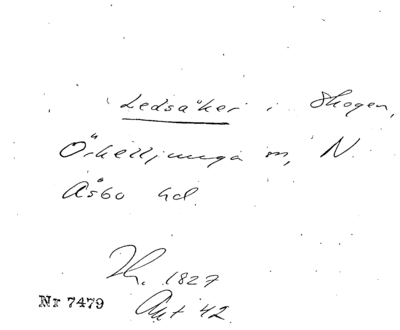 Ledsåker i Skogen,
Örkelljunga sn, N.
Åsbo hd.
Th. 1827
Nr 7479 Akt 42